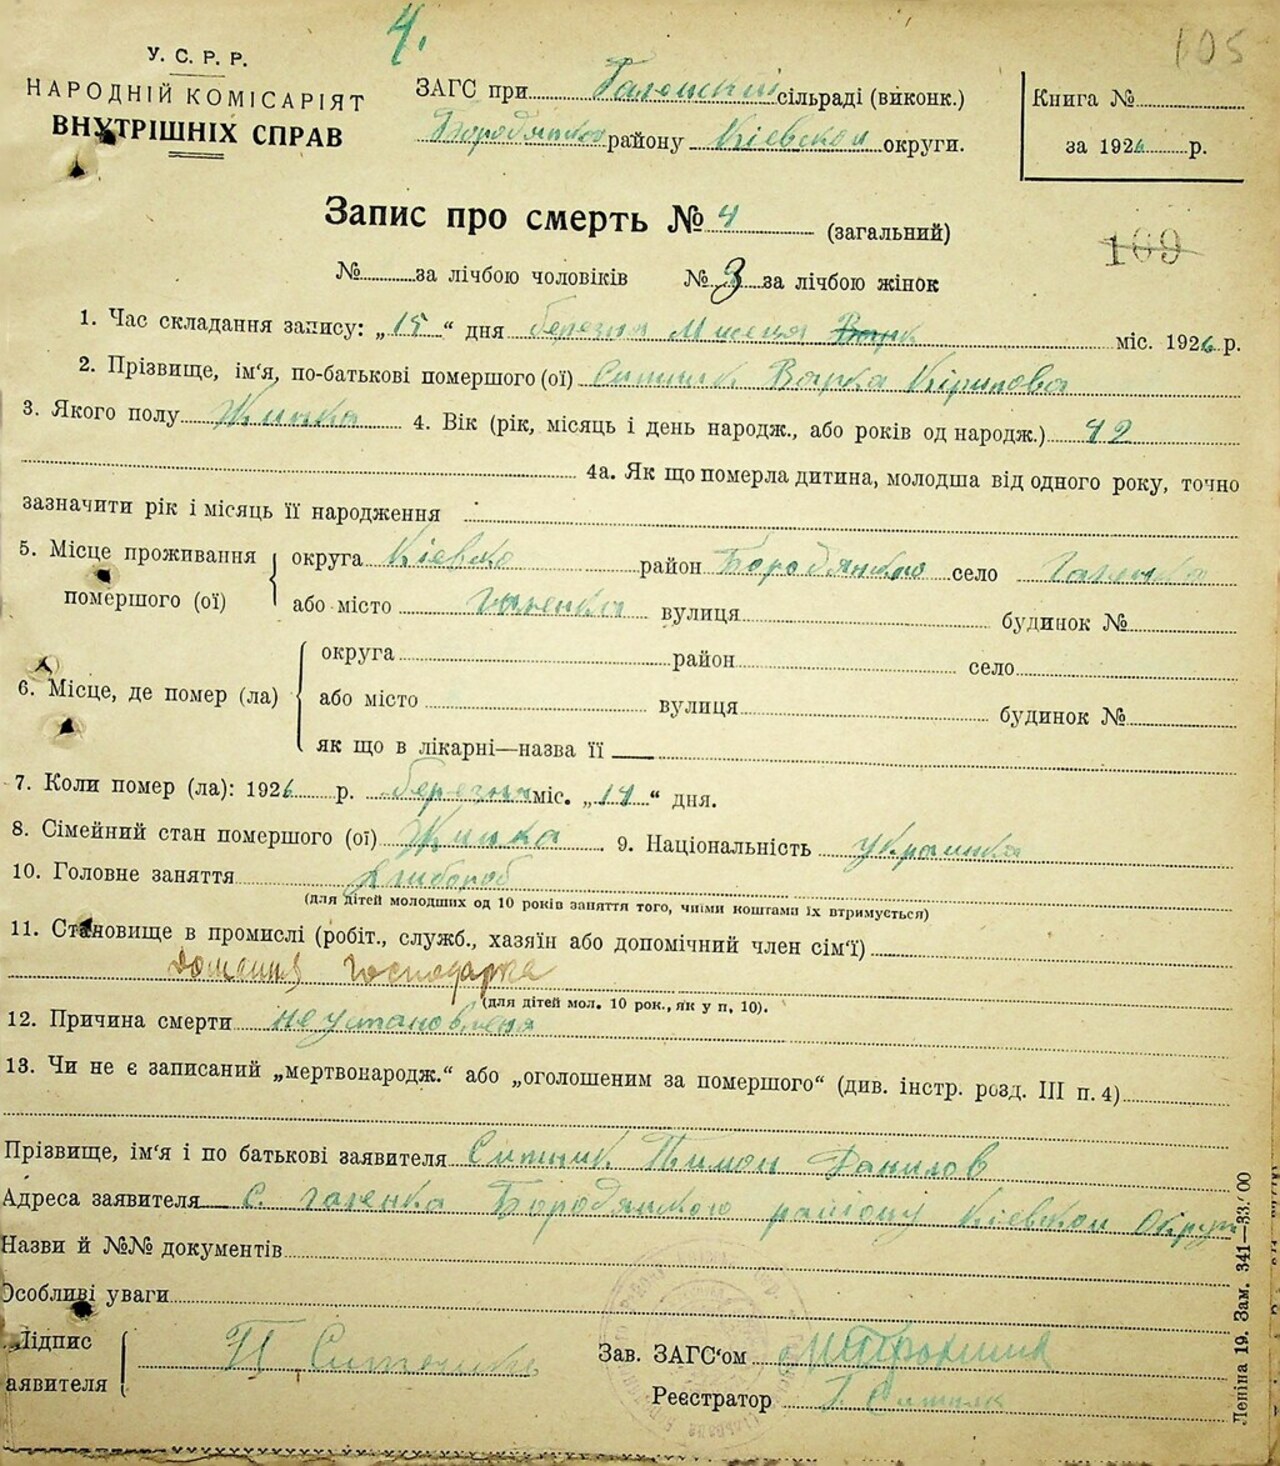 4.
105
У. С. Р. Р.
НАРОДНІЙ КОМІСАРІЯТ
ВНУТРІШНІХ СПРАВ
ЗАГС при сільраді (виконк.)
району Кіевскои округи.
Книга №
за 1926 р.
Запис про смерть № 4 (загальний)
169
№ за лічбою чоловіків № 3 за лічбою жінок
1. Час складання запису: „15“ дня березня міс. 1926 р.
2. Прізвище, ім‘я, по-батькові помершого (ої) Ситник Варка Кірилова
3. Якого полу Жинка 4. Вік (рік, місяць і день народж., або років од народж.) 42
4а. Як що померла дитина, молодша від одного року, точно
зазначити рік і місяць її народження
5. Місце проживання помершого (ої)
округа Кіевско район Бородянкого село Галенка
або місто Галенка вулиця будинок №
6. Місце, де помер (ла)
округа район село
або місто вулиця будинок №
як що в лікарні—назва її
7. Коли помер (ла): 1926 р. березня міс. „14“ дня.
8. Сімейний стан помершого (ої) Жинка 9. Національність Украинка
10. Головне заняття Хлибороб
(для дітей молодших од 10 років заняття того, чиїми коштами їх втримується)
11. Становище в промислі (робіт., служб., хазяїн або допомічний член сім‘ї)
Домашня Господарка
(для дітей мол. 10 рок., як у п. 10).
12. Причина смерти не установленя
13. Чи не є записаний „мертвонародж.“ або „оголошеним за помершого“ (див. інстр. розд. III п. 4)
Прізвище, ім‘я і по батькові заявителя Ситник Тимон Данилов
Адреса заявителя с. Галенка Бородянкого району Кіевскои Округи
Назви й №№ документів
Особливі уваги
Підпис
заявителя
Т Ситник
Зав. ЗАГС‘ом
Реєстратор Ситник
Леніна 19. Зам. 341—33.